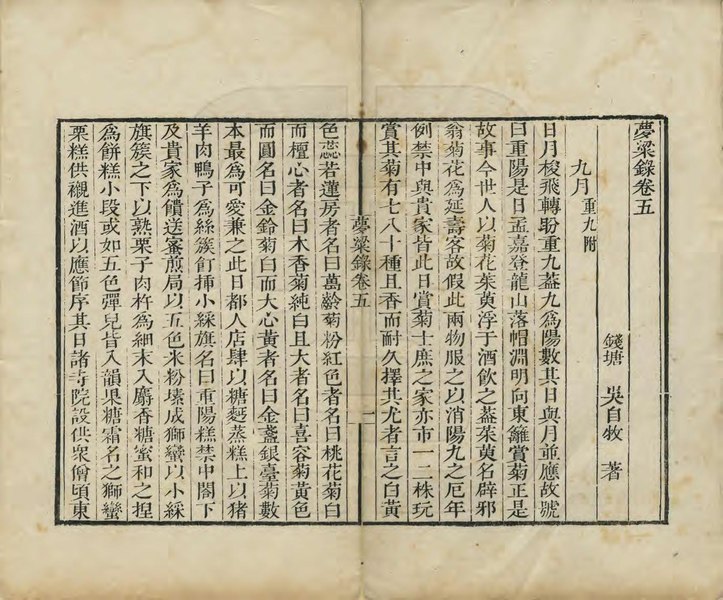 夢粱錄卷五
錢塘 吳自牧 著
九月 重九附
日月梭飛轉盼重九蓋九為陽數其日與月並應故號
曰重陽是日孟嘉登龍山落帽淵明向東籬賞菊正是
故事今世人以菊花茱萸浮于酒飲之蓋茱萸名辟邪
翁菊花為延壽客故假此兩物服之以消陽九之厄年
例禁中與貴家皆此日賞菊士庶之家亦市一二株玩
賞其菊有七八十種且香而耐久擇其尤者言之白黃
夢粱錄卷五
一
色蕊若蓮房者名曰萬齡菊粉紅色者名曰桃花菊白
而檀心者名曰木香菊純白且大者名曰喜容菊黃色
而圓名曰金鈴菊白而大心黃者名曰金盞銀臺菊數
本最為可愛兼之此日都人店肆以糖麪蒸糕上以豬
羊肉鴨子為絲簇飣插小綵旗名曰重陽糕禁中閣下
及貴家為饋送蜜煎局以五色米粉塑成獅蠻以小綵
旗簇之下以熟栗子肉杵為細末入麝香糖蜜和之捏
為餅糕小段或如五色彈兒皆入韻果糖霜名之獅蠻
栗糕供襯進酒以應節序其日諸寺院設供眾僧頃東